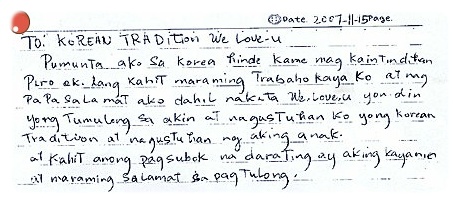 Date. 2007-11-15 Page.
TO: KOREAN TRADITION We Love.u
Pumunta ako sa korea hinde kame mag kaintindihan
Puro ok. lang kahit maraming Trabaho kaya ko at nag
PaPaSalamat ako dahil nakita We.Love.u yon din
yong Tumulong sa akin at nagustuhan ko yong korean
Tradition at nagustuhan ng aking anak.
at Kahit anong pagsubok na darating ay aking kayanin
at maraming salamat sa pagtulong.